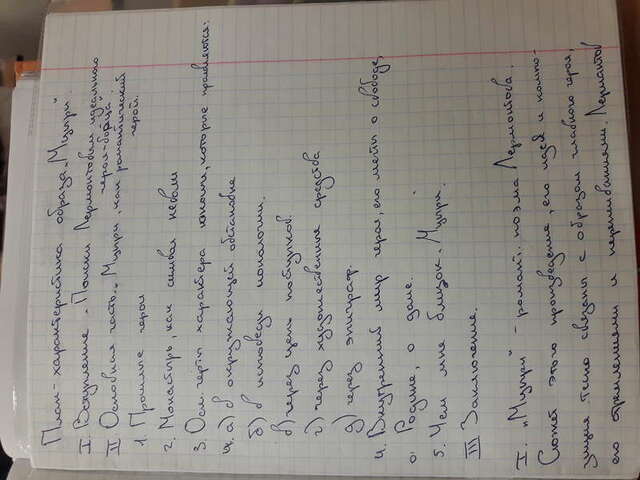 План-характеристика образа „Мцыри".
I Вступление „Поиски Лермонтовым идеального
героя-борца"
II Основная часть „Мцыри, как романтический
герой.
1. Прошлые героя
2. Монастырь, как символ неволи
3. Осн. черты характера юноши, которые проявляются:
4. а) в окружающей обстановке
б) в исповеди монологии.
в) через цепь поступков.
г) через художественные средства
д) через эпиграф.
4. Внутренний мир героя, его мечты о свободе,
о Родине, о доме.
5. Чем мне близок „Мцыри"
III Заключение.
I. „Мцыри" - романт. поэма Лермонтова.
Сюжет этого произведение, его идея и компо-
зиция тесно связаны с образом главного героя,
его стремлениями и переживаниями. Лермантов